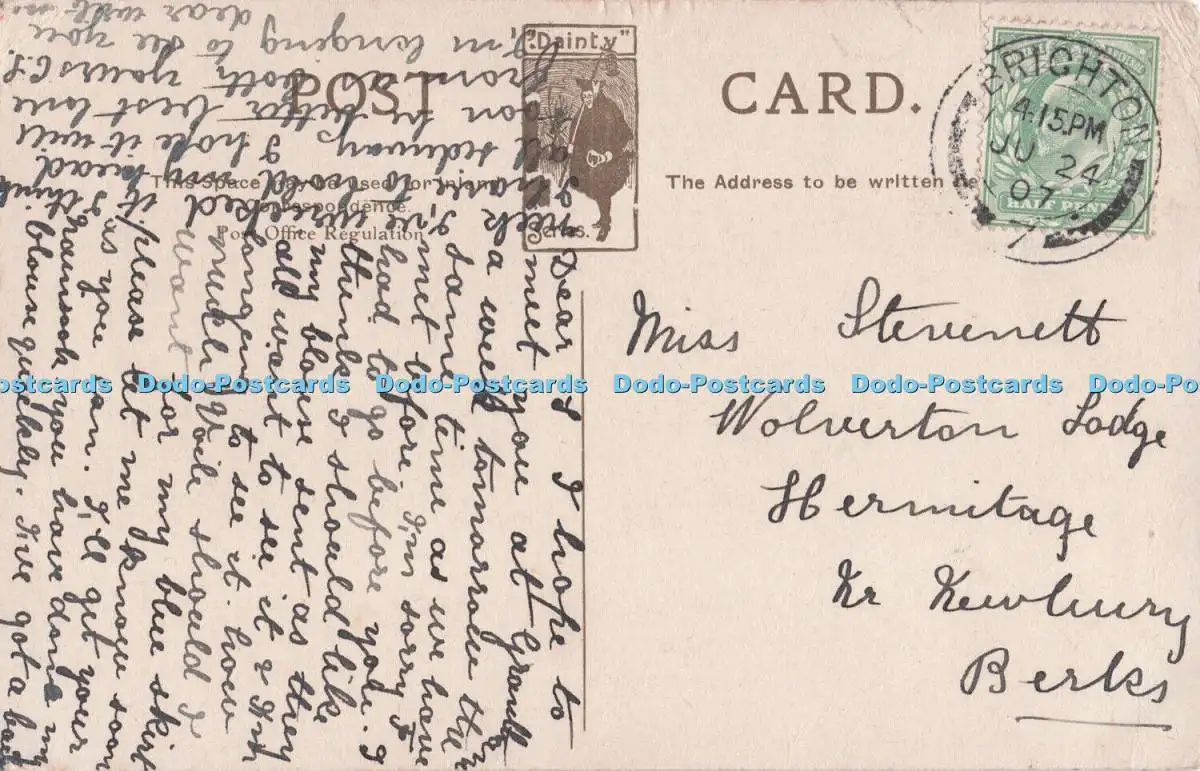 "Dainty"
Series.
POST CARD.
This Space may be used for
Correspondence
Post Office Regulation
The Address to be written
BRIGHTON
4.15.PM
JU 24
07
HALF PENNY
Miss Stevenett
Wolverton Lodge
Hermitage
Nr Newbury
Berks
Dear I hope to
meet you at
a week tomorrow the
same time as we have
met before. I'm sorry I
had to go before you. I
think I should like
my blouse sent as they
all want to see it & I'm
longing to see it. how
much Voile should I
want for my blue skirt
please let me know soon
as you can. I'll get your
you have done my
blouse quickly. I've got a bad
I've
I hope it will
soon be better best love
from
I'm longing to see you
dear
Dodo-Postcards Dodo-Postcards Dodo-Postcards Dodo-Postcards Dodo-Postcards